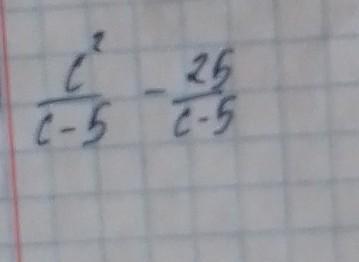 c²/(c-5) - 25/(c-5)